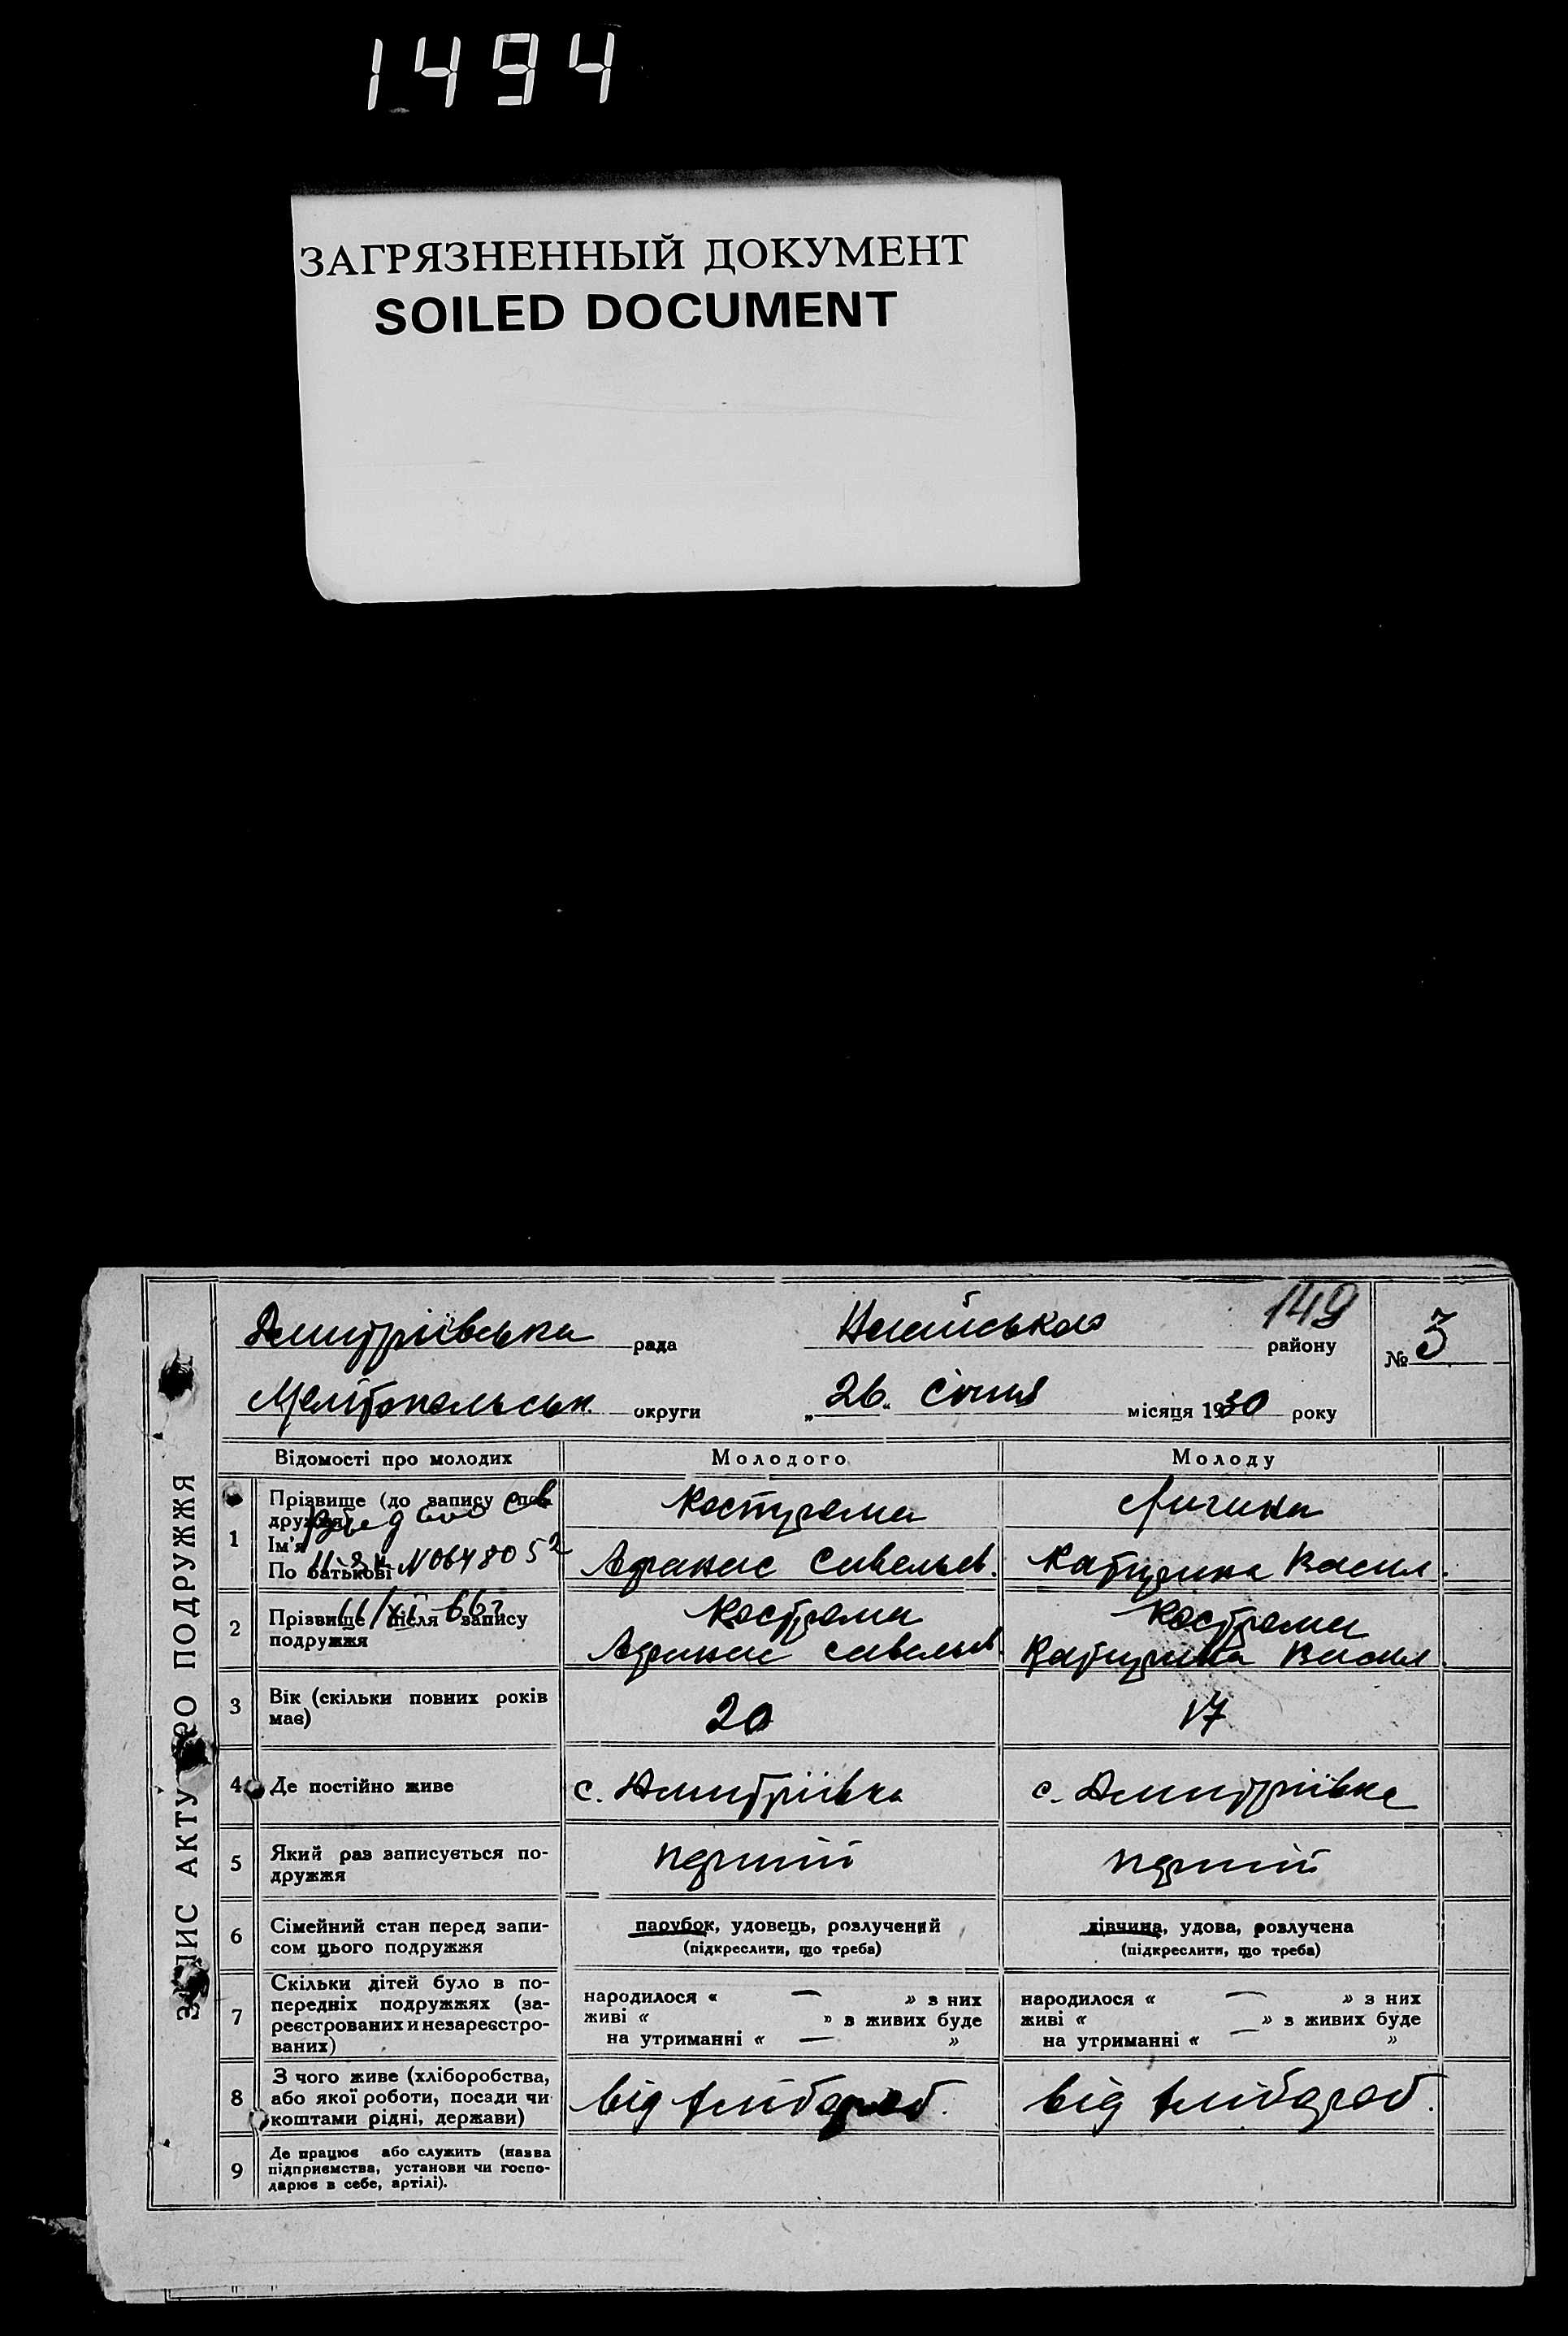 1494
ЗАГРЯЗНЕННЫЙ ДОКУМЕНТ
SOILED DOCUMENT
ЗАПИС АКТУ ПРО ПОДРУЖЖЯ
149
Дмитріївська рада
району
№ 3
Мелітопольськ. округи „26„ січня місяця 1930 року
Відомості про молодих Молодого Молоду
1 Прізвище (до запису подружжя)
Ім'я
По батькові
N 0648052
11/XI 66 г
Кострома
Афанас Савельев. Катирина Васил.
2 Прізвище після запису подружжя
Кострома Кострома
Афанас Савельев. Катирина Васил.
3 Вік (скільки повних років має) 20 17
4 Де постійно живе с. Дмитріївка с. Дмитріївка
5 Який раз записується подружжя перший перший
6 Сімейний стан перед записом цього подружжя
парубок, удовець, розлучений дівчина, удова, розлучена
(підкреслити, що треба) (підкреслити, що треба)
7 Скільки дітей було в попередніх подружжях (зареєстрованих и незареєстрованих)
народилося « — » з них народилося « — » з них
живі « » з живих буде живі « » з живих буде
на утриманні « — » на утриманні « — »
8 З чого живе (хліборобства, або якої роботи, посади чи коштами рідні, держави)
від хлібороб. від хлібороб.
9 Де працює або служить (назва підприємства, установи чи господарює в себе, артілі).